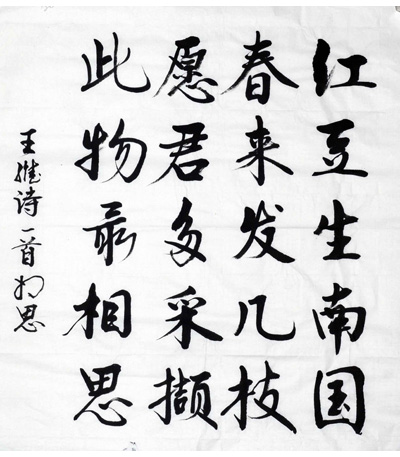 红豆生南国
春来发几枝
愿君多采撷
此物最相思
王维诗一首相思